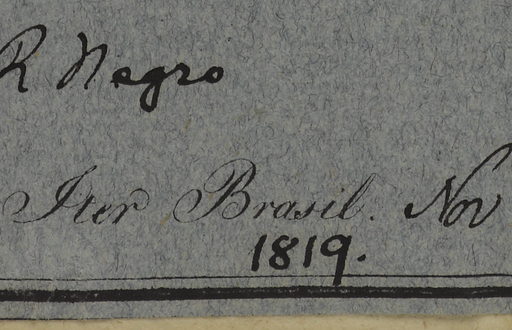 R Negro
Iter Brasil. Nov
1819.